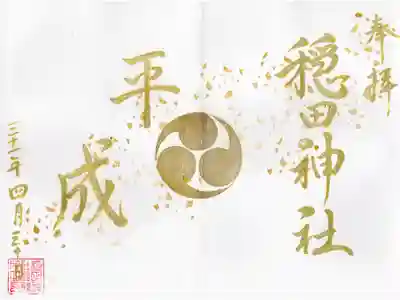 奉拝
穏田神社
平成
三十一年四月三十日